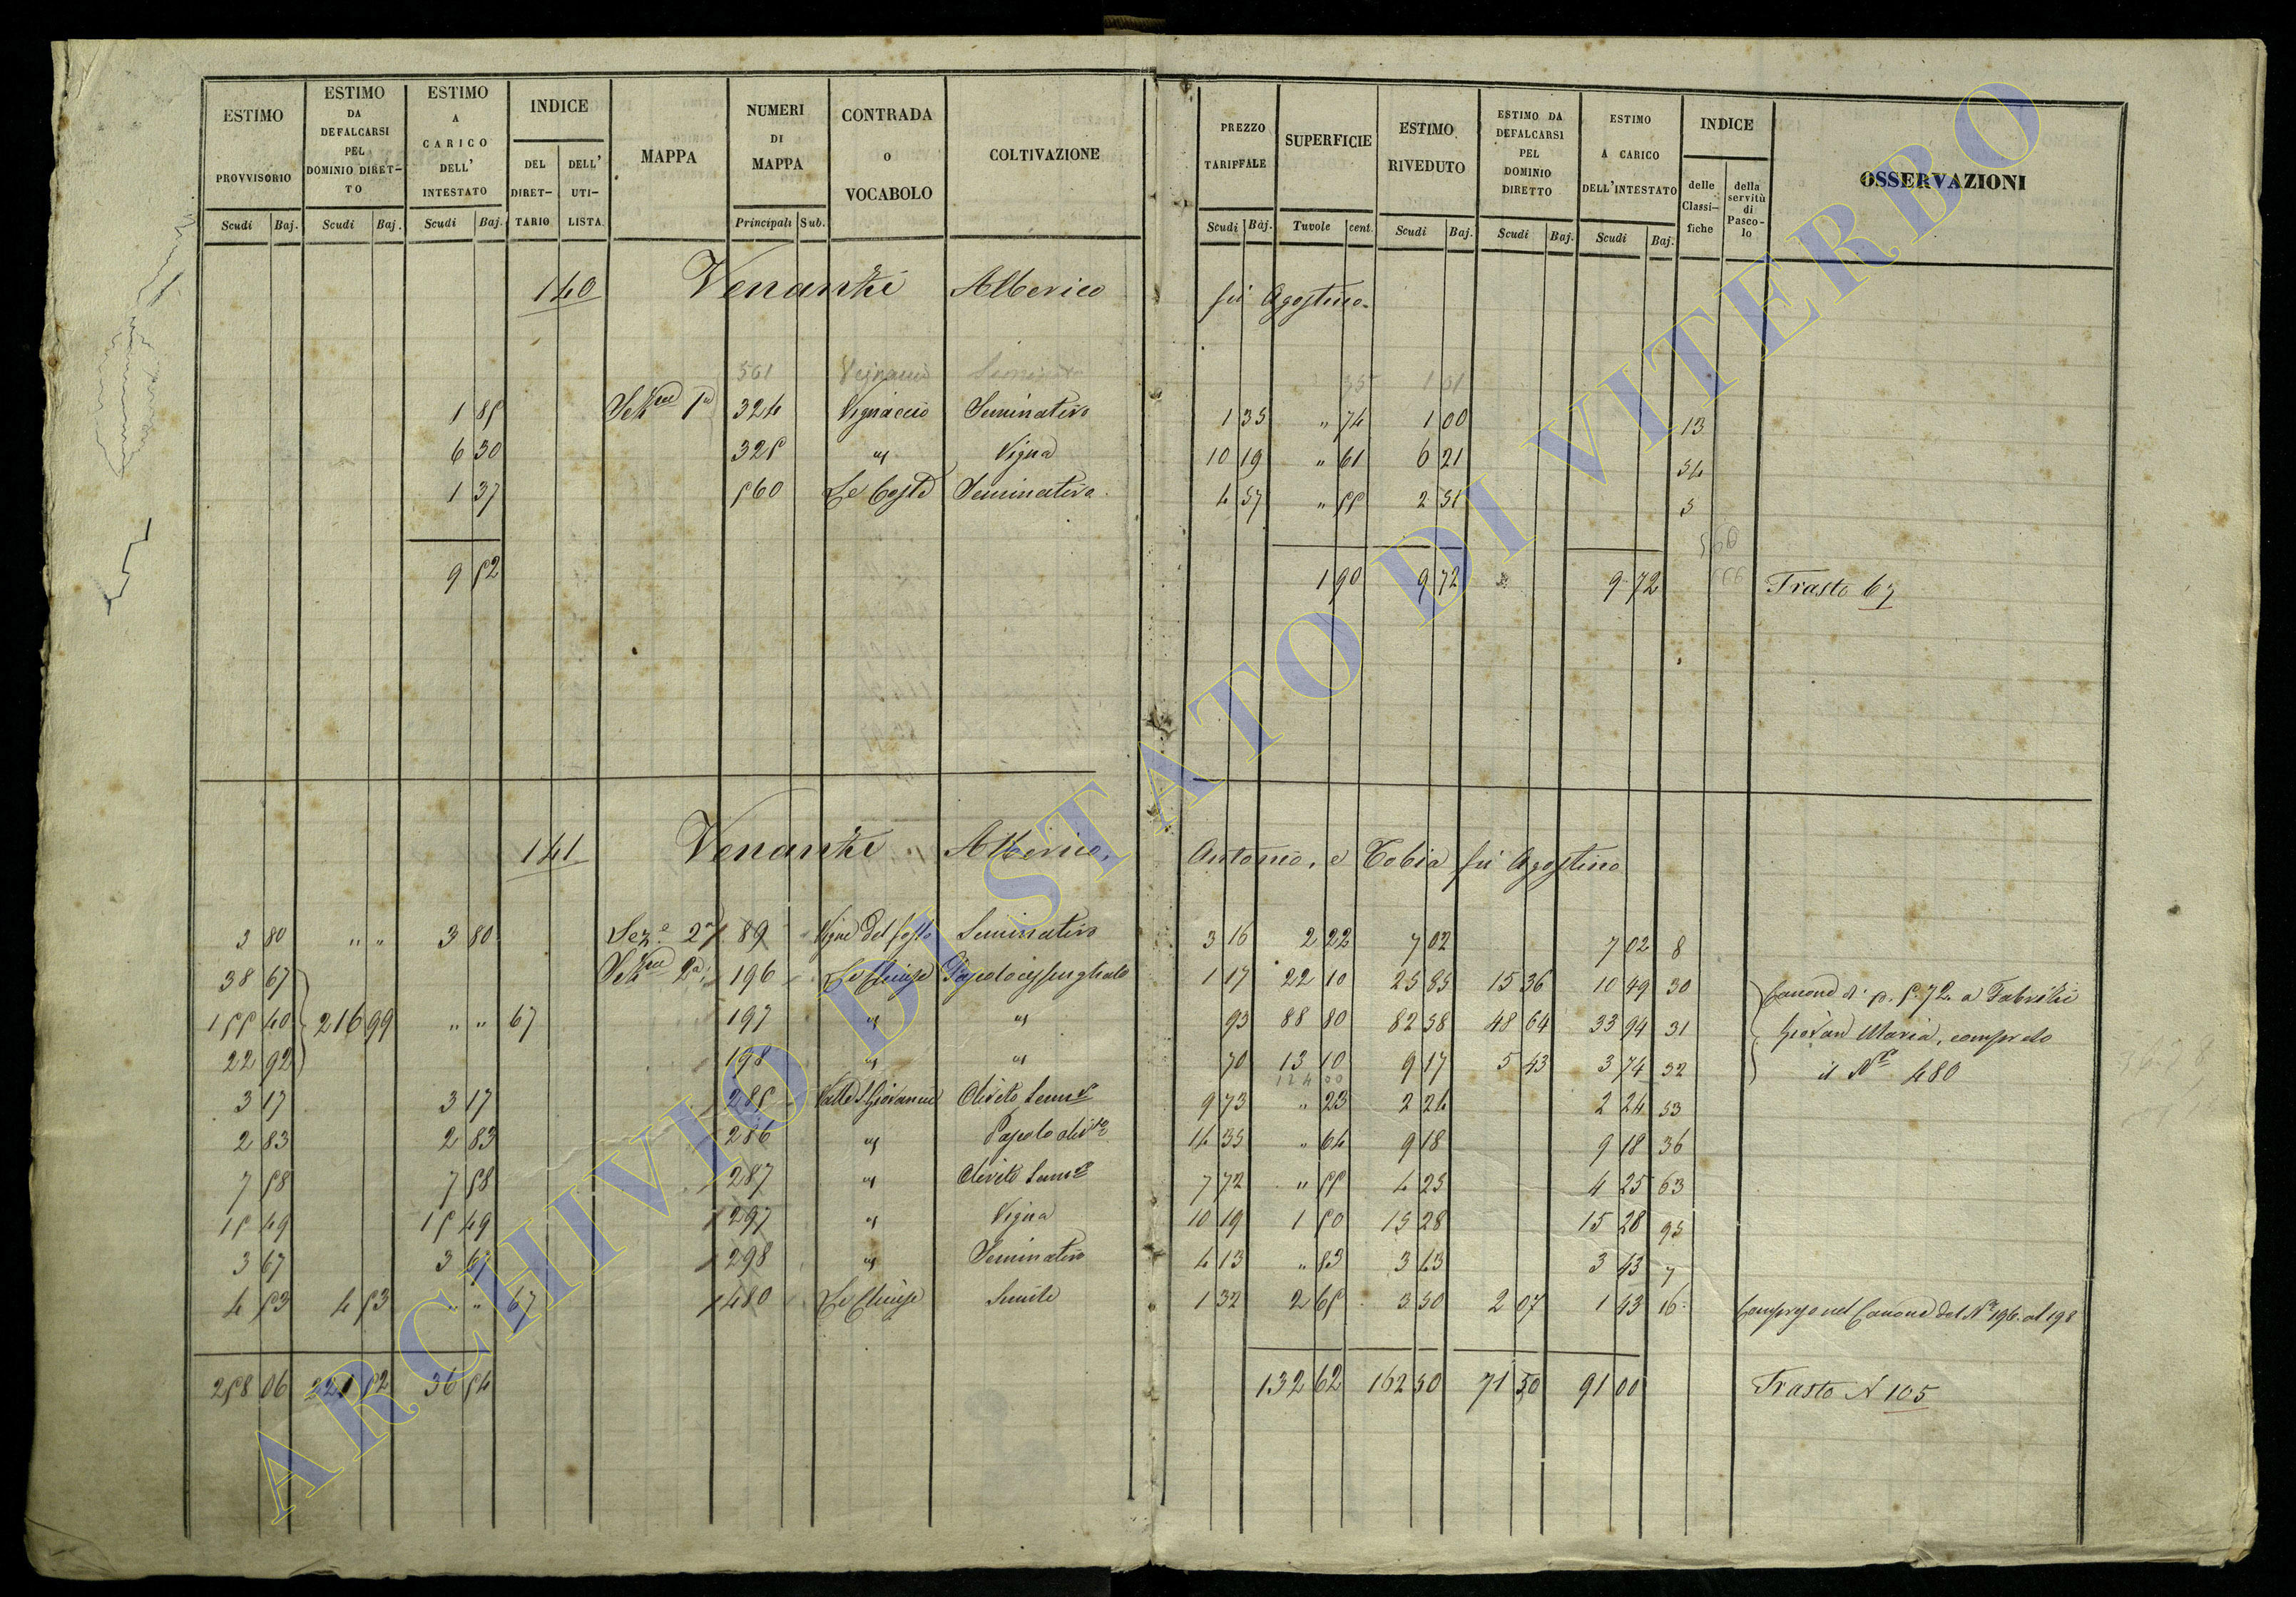 ESTIMO PROVVISORIO
ESTIMO DA DEFALCARSI PEL DOMINIO DIRET-TO
ESTIMO A CARICO DELL' INTESTATO
INDICE
DEL DIRET-TARIO
DELL' UTI-LISTA
MAPPA
NUMERI DI MAPPA
CONTRADA o VOCABOLO
COLTIVAZIONE
PREZZO TARIFFALE
SUPERFICIE
ESTIMO RIVEDUTO
ESTIMO DA DEFALCARSI PEL DOMINIO DIRETTO
ESTIMO A CARICO DELL'INTESTATO
INDICE
delle Classi-fiche
della servitù di Pasco-lo
OSSERVAZIONI
Scudi Baj. Scudi Baj. Scudi Baj. Principali Sub. Scudi Baj. Tavole cent. Scudi Baj. Scudi Baj. Scudi Baj.
140 Venanzi Alberico fu Agostino
561 Vignaccio 35 1 61
1 85 324 Vignaccio Seminativo 1 35 " 74 1 00 13
6 30 325 " Vigna 10 19 " 61 6 21 54
1 37 560 Le Coste Seminativo 4 57 " 55 2 51 5
560
9 52 1 90 9 72 9 72 Trasto 67
141 Venanzi Alberico, Antonio, e Tobia fu Agostino
3 80 " " 3 80 Sez.e 2a 89 Vigne del fosso Seminativo 3 16 2 22 7 02 7 02 8
38 67 2a 196 Le Chiuse Pascolo cespugliato 1 17 22 10 25 85 15 36 10 49 30 Canone di s. 5.72 a Fabrizi
155 40 216 99 " " 67 197 " " 93 88 80 82 58 48 64 33 94 31 Giovan Maria, compreso
22 92 198 " " 70 13 10 9 17 5 43 3 74 32 il N.o 480
124 00
3 17 3 17 285 Valle S. Giovanni Oliveto Sem.o 9 73 " 23 2 24 2 24 53
2 83 2 83 286 " Pascolo oliv.o 14 35 " 64 9 18 9 18 36
7 58 7 58 287 " Oliveto Sem.o 7 72 " 55 4 25 4 25 63
15 49 15 49 297 " Vigna 10 19 1 50 15 28 15 28 95
3 67 3 67 298 " Seminativo 4 13 " 83 3 43 3 43 7
4 53 4 53 " " 67 480 Le Chiuse Simile 1 32 2 65 3 50 2 07 1 43 16 Compreso nel Canone del N.o 196 al 198
258 06 221 52 36 54 132 62 162 50 71 50 91 00 Trasto A 105
ARCHIVIO DI STATO DI VITERBO